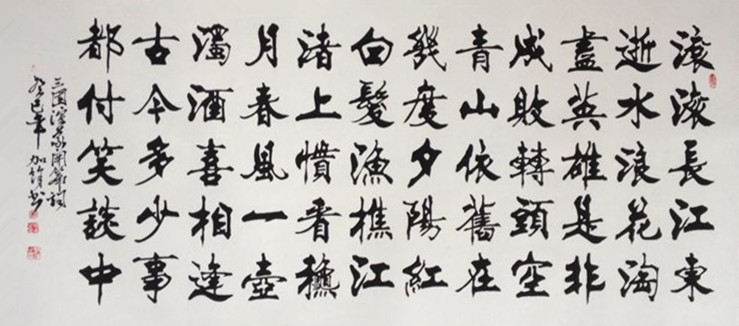 滚滚長江東
逝水浪花淘
盡英雄是非
成敗轉頭空
青山依舊在
幾度夕陽紅
白髮漁樵江
渚上慣看穐
月春風一壺
濁酒喜相逢
古今多少事
都付笑談中
三国演義開篇詞
癸巳年